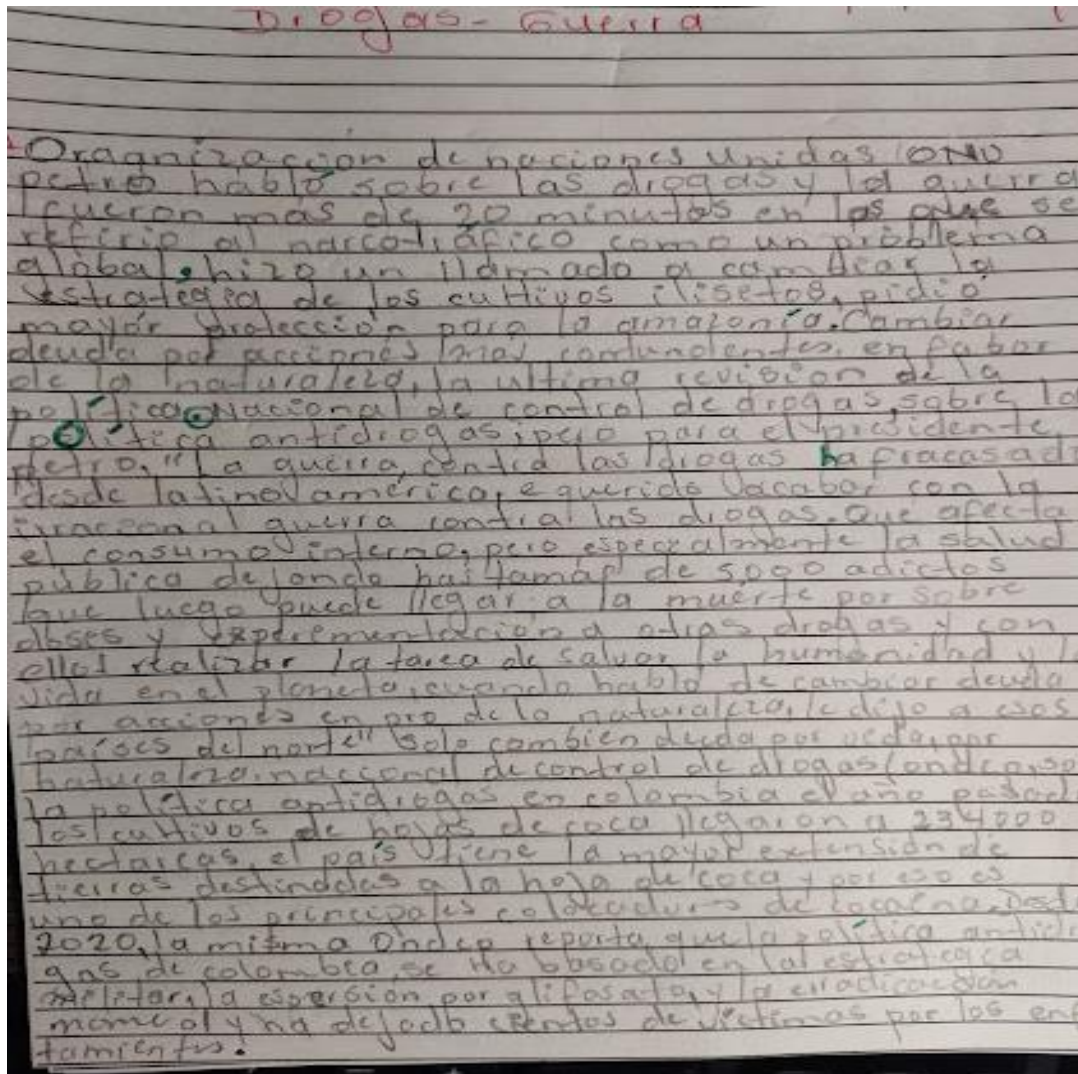 Drogas - Guerra
Oragnización de naciones Unidas ONU
petro habló sobre las drogas y la guerra
fueron más de 20 minutos en los que se
refirip al narcotráfico como un problema
global. hizo un llamado a cambiar la
estrategia de los cultivos ilisetos, pidió
mayor protección para la amazonía. Cambiar
deuda por acciones mas contundentes, en fabor
de la naturaleza, la ultima revisión de la
política Nacional de control de drogas, sobre la
política antidrogas, pero para el presidente
petro, "La guerra contra las drogas ha fracasad
desde latino américa, e querido acabar con la
irracional guerra contra las drogas. Que afecta
el consumo interno, pero especialmente la salud
pública dejando de 5,000 adictos
que luego puede llegar a la muerte por sobre
dosis y a otras drogas y con
ellos realizar la tarea de salvar la humanidad y l
vida en el planeta, cuando habló de cambiar deuda
por acciones en pro de la naturaleza, le dijo a esos
países del norte" Solo cambien deuda por por
naturaleza. nacional de control de drogas so
la política antidrogas en colombia el año pasad
los cultivos de hojas de coca llegaron a 234000
hectareas, el país tiene la mayor extensión de
tierras destinadas a la hoja de coca y por eso es
uno de los principales de cocaína. Desd
2020, la misma Ondcp reporta que la política antidr
gas de colombia, se ha basado en la estrategia
militar, la espersión por glifosato, y la erradicación
y ha dejado cientos de victimas por los enf
tamientos.